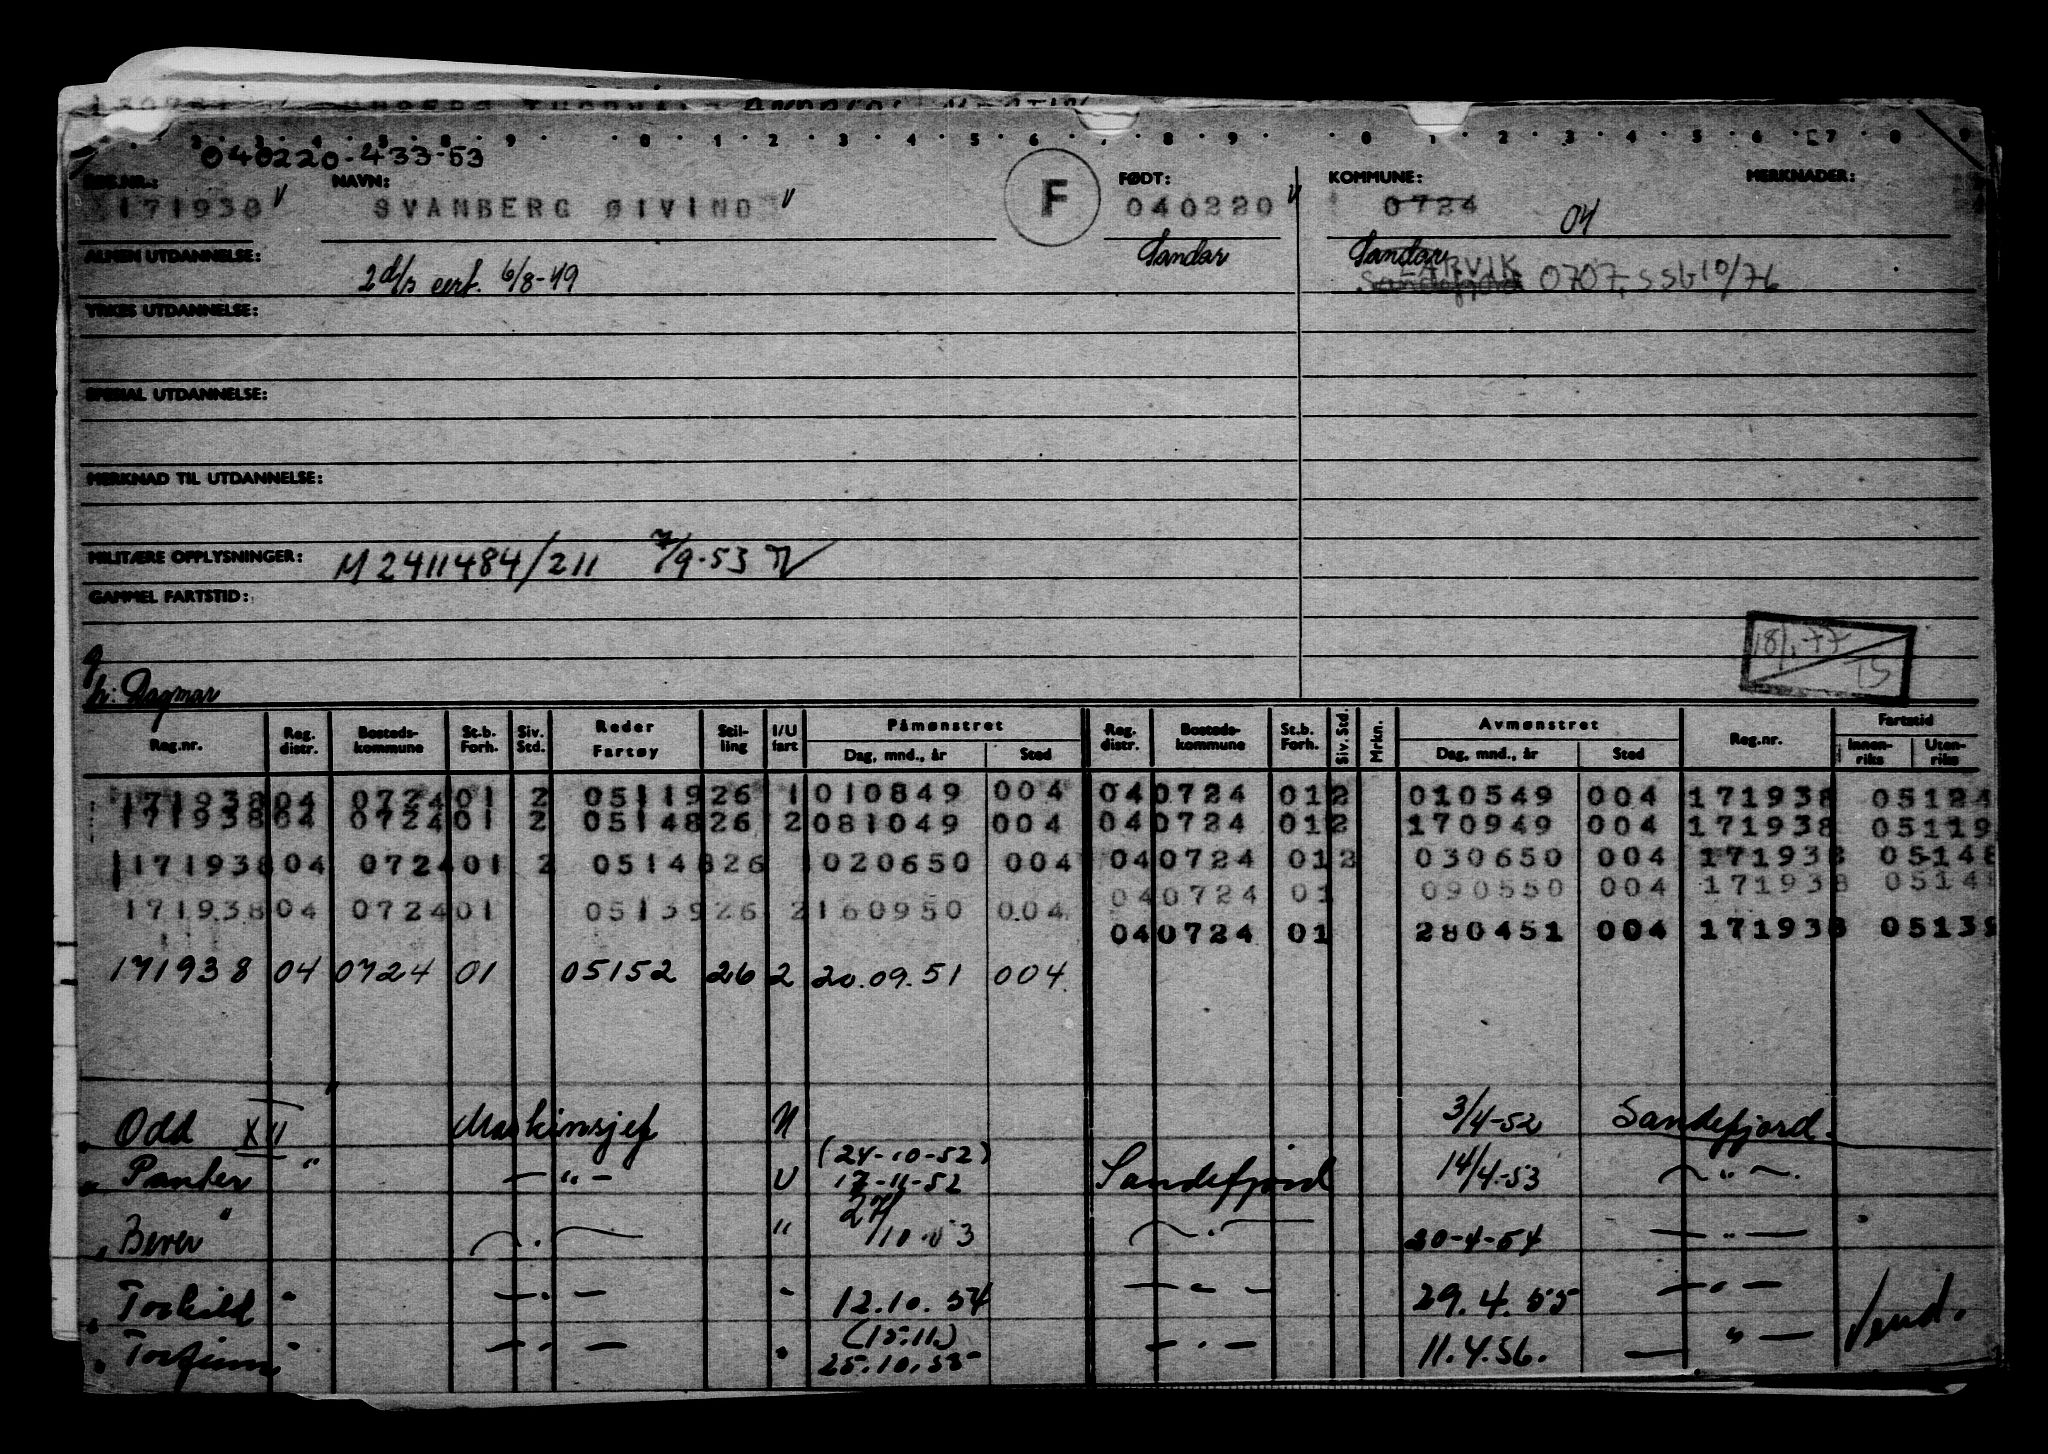 040220-433-53
REG.NR.: NAVN: FØDT: KOMMUNE: MERKNADER:
171938 V SVAMBERG ØIVIND V F 040220 V 0724 04
ALMEN UTDANNELSE: 2d/s cert. 6/8-49 Sandar Sandar
LARVIK
Sandefjord 0707, SSb 10/76
YRKES UTDANNELSE:
SPESIAL UTDANNELSE:
MERKNAD TIL UTDANNELSE:
MILITÆRE OPPLYSNINGER: M 2411484/211 7/9-53
GAMMEL FARTSTID:
18/1-77
TS
h: Dagmar
Reg.nr. Reg. distr. Bosteds-kommune St.b. Forh. Siv. Std. Reder Fartøy Stil-ling I/U fart Påmønstret Dag, mnd., år Sted Reg. distr. Bosteds-kommune St.b. Forh. Siv. Std. Mrkn. Avmønstret Dag, mnd., år Sted Reg.nr. Fartstid Innen-riks Uten-riks
171938 04 0724 01 2 05119 26 1 010849 004 04 0724 01 2 010549 004 171938 05124
171938 04 0724 01 2 05148 26 2 081049 004 04 0724 01 2 170949 004 171938 05119
171938 04 0724 01 2 05148 26 1 020650 004 04 0724 01 2 030650 004 171938 05148
04 0724 01 090550 004 171938 0514
171938 04 0724 01 05139 26 2 160950 004
04 0724 01 280451 004 171938 05139
171938 04 0724 01 05152 26 2 20.09.51 004
Odd XII " Maskinsjef U 3/4-52 Sandefjord.
Panter " — " — U (24-10-52) 17-11-52 Sandefjord 14/4-53 — " —.
Bever " — " — " 27/10-53 — " — 20-4-54 — " —
Torkild " — " — " 12.10.54 — " — 29.4.55 — " —
Torfinn " — " — " (15.11.) 25.10.55 — " — 11.4.56. — " — Vend.